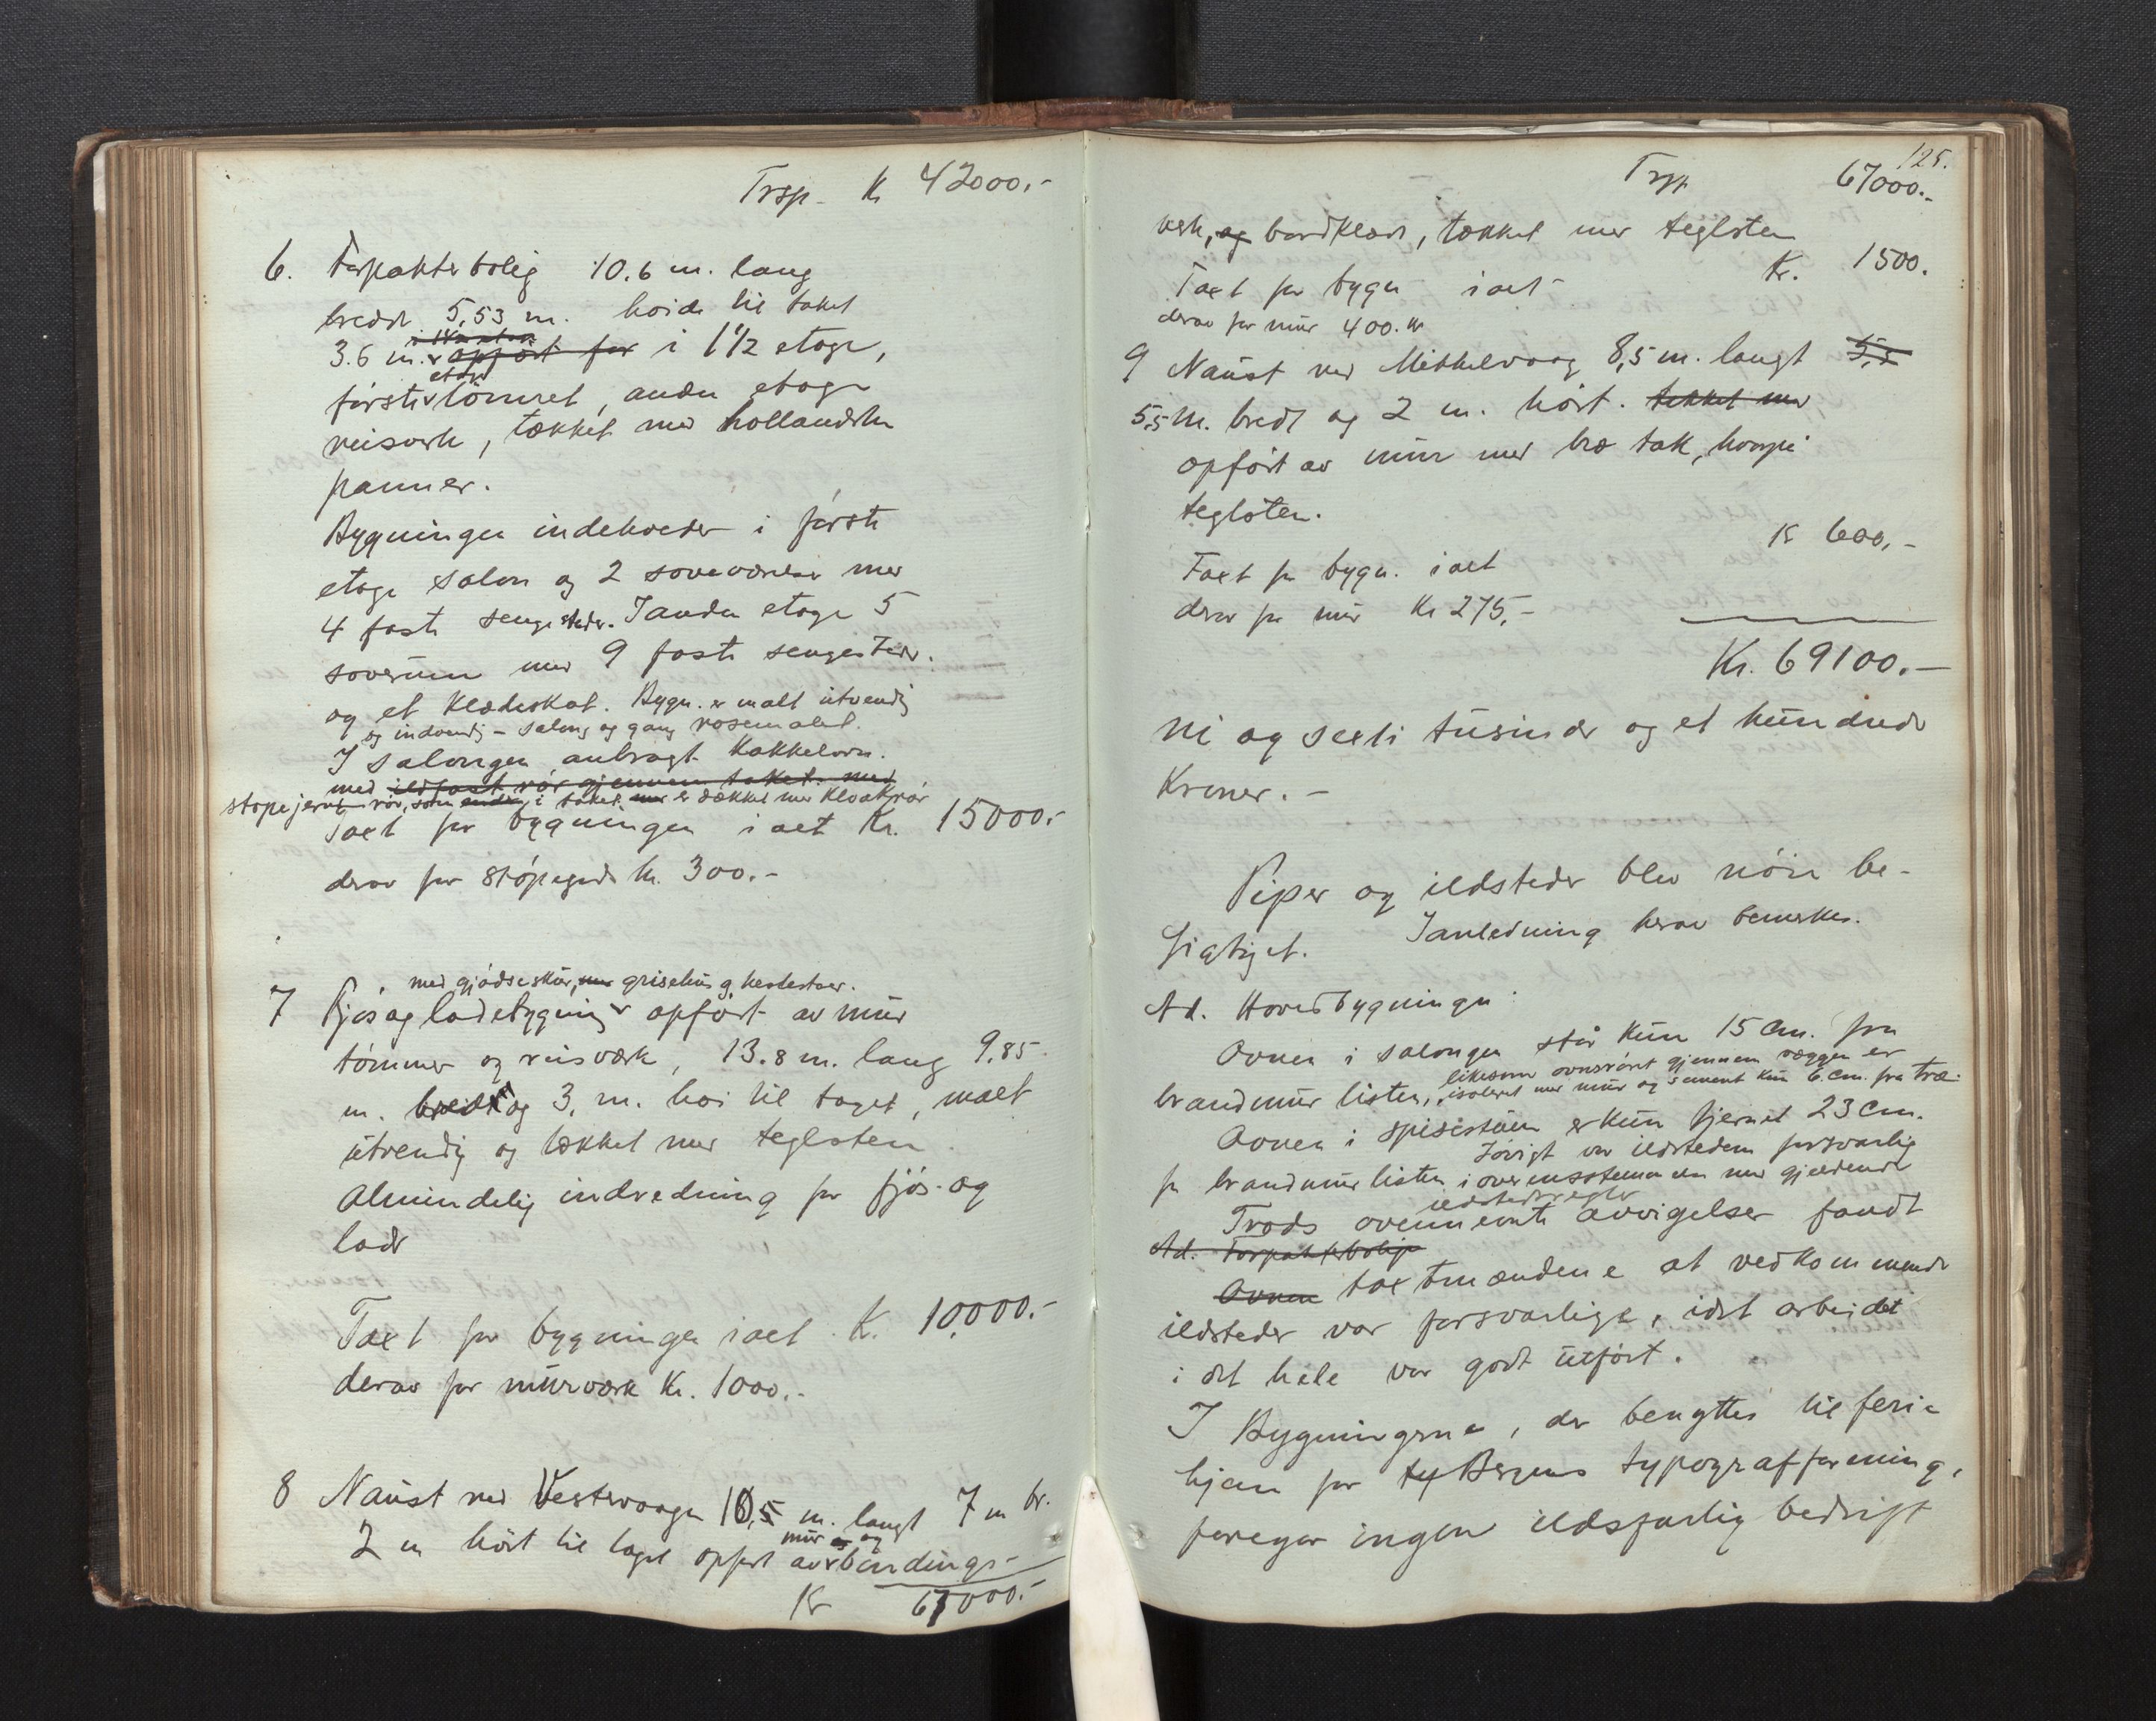 Trsp. Kr 42000.-
6. Forpakterbolig 10.6 m. lang
bredde 5,53 m. høide til taket
3.6 m. opført for i 1 1/2 etage,
første etage tømret, anden etage
reisverk, tækket med hollandske
panner.
Bygningen indeholder i første
etage salon og 2 soveværelser med
4 faste sengesteder. I anden etage 5
soverum med 9 faste sengesteder.
og et klædeskot. Bygn. er malt utvendig
og indvendig - salong og gang rosemalet.
I salongen anbragt kakkelovn.
med ildfast rør gjennem taket. med
støpejerns rør, som ender i taket med er dækket med kloakrør
Taxt for bygningen i alt Kr. 15000.-
derav for støpegods kr. 300.-
med gjødselskur, med grisehus og hestestald.
7 Fjøs og ladebygning opført av mur
tømmer og reisværk, 13.8 m. lang 9.85
m. bred og 3, m. høi til taget, malt
utvendig og tækket med teglsten.
Almindelig indredning for fjøs- og
lade
Taxt for bygningen i alt K. 10,000.-
derav for murværk Kr. 1000.-
8 Naust ved Vestrevaagen 10,5 m. langt 7 m br.
2 m høit til taget opført av mur og bindings-
Kr 67000.-
125.
Trsp 67000.-
verk, og bordklædt, tækket med teglsten
Taxt for bygn i alt Kr. 1500.
derav for mur 400. kr
9 Naust ved Mikkelvaag 8,5 m. langt 5,5
5,5 m. bredt og 2 m. høit. tekket med
opført av mur med træ tak, hvorpå
teglsten.
Taxt for bygn. i alt K 600,-
derav for mur Kr 275,-
Kr. 69100.-
ni og seksti tusinde og et hundrede
Kroner. -
Piper og ildsteder blev nøie be-
sigtiget. I anledning herav bemerkes.
Ad. Hovedbygningen:
Ovnen i salongen står kun 15 cm. fra
brandmur listen, likesom ovnsrøret gjennem væggen er
isoleret med mur og sement kun 6 cm. fra træ.
Ovnen i spisestuen er kun fjernet 23 cm.
fra brandmurlisten. Iøvrigt var ildstedene forsvarlig
i overensstemmelse med gjældende
ildstedsregler
Trods ovennevnte avvigelser fandt
Ad. Forpakterbolig
Ovnen taxtmændene at vedkommende
ildsteder var forsvarlige, idet arbeidet
i det hele var godt utført.
I Bygningerne, der benyttes til ferie
hjem for ty Bergens typografforening,
foregaar ingen ildsfarlig bedrift